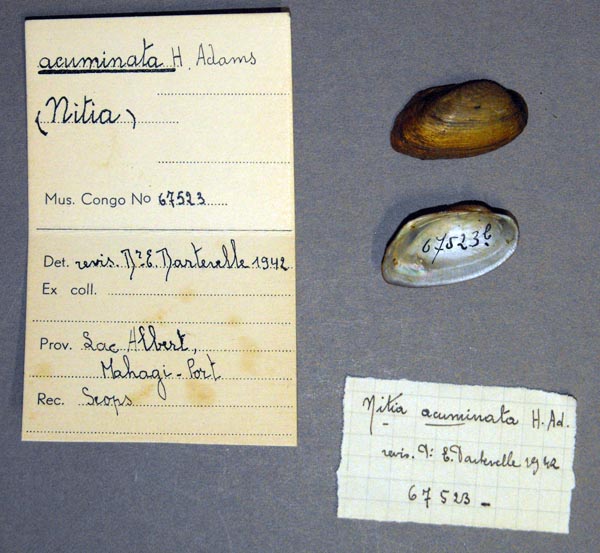 acuminata H. Adams
(Nitia)
Mus. Congo No 67523
Det. revis. Dr. E. Dartevelle 1942
Ex coll.
Prov. Lac Albert,
Mahagi-Port
Rec. Scops
67523b
Nitia acuminata H. Ad.
revis. Dr E. Dartevelle 1942
67523_